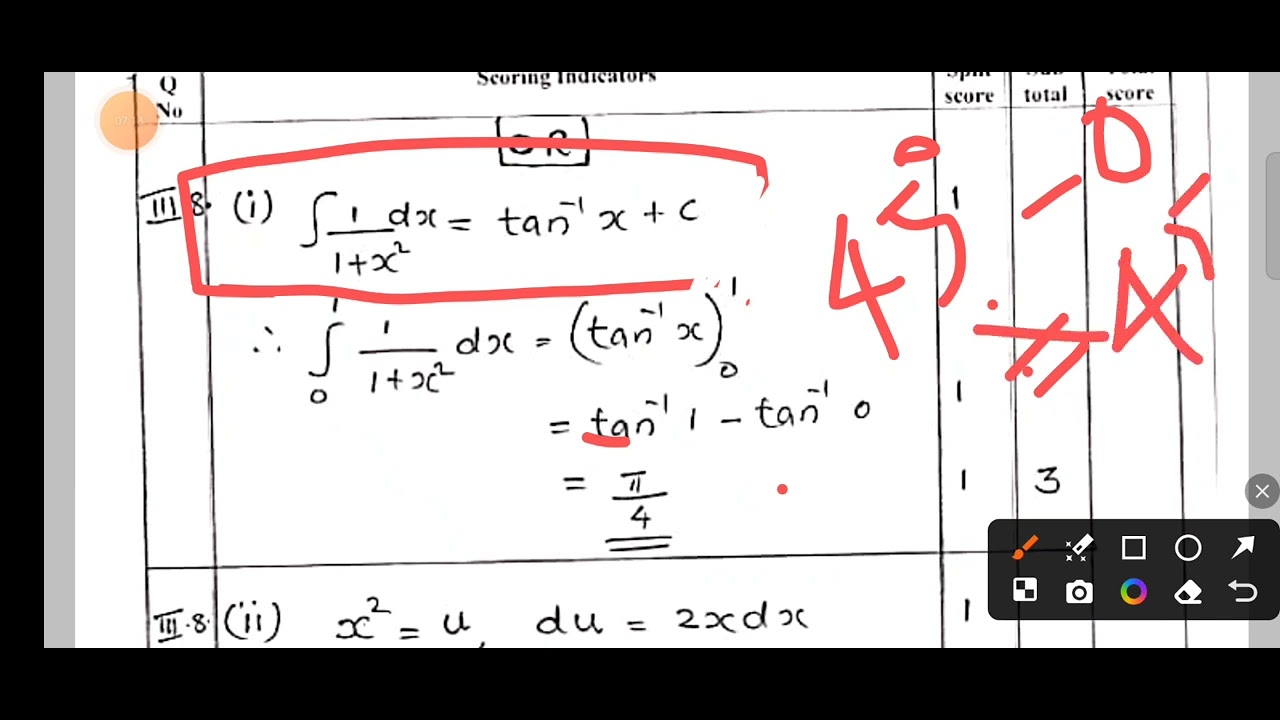 Q No Scoring Indicators score total score
OR
III 8. (i) ∫ 1/(1+x²) dx = tan⁻¹ x + c 1
∴ ∫₀¹ 1/(1+x²) dx = (tan⁻¹ x)₀¹
= tan⁻¹ 1 – tan⁻¹ 0 1
= π/4 1 3
III.8. (ii) x² = u, du = 2x dx 1
45° – 0